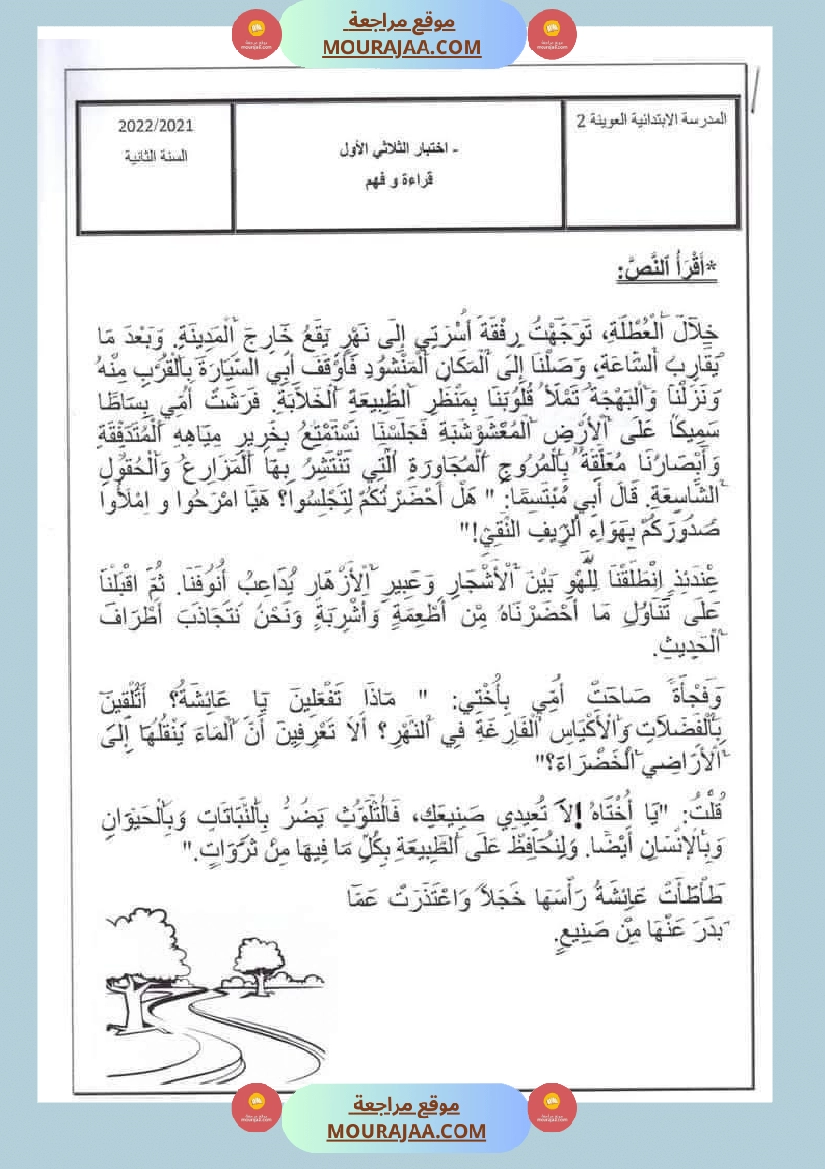 موقع مراجعة
MOURAJAA.COM
المدرسة الابتدائية العوينة 2
- اختبار الثلاثي الأول
قراءة و فهم
2022/2021
السنة الثانية
*أَقْرَأُ النَّصَّ:
خِلَالَ الْعُطْلَةِ، تَوَجَّهْتُ رِفْقَةَ أُسْرَتِي إِلَى نَهْرٍ يَقَعُ خَارِجَ الْمَدِينَةِ. وَبَعْدَ مَا
يُقَارِبُ السَّاعَةِ، وَصَلْنَا إِلَى الْمَكَانِ الْمَنْشُودِ فَأَوْقَفَ أَبِي السَّيَّارَةَ بِالْقُرْبِ مِنْهُ
وَنَزَلْنَا وَالْبَهْجَةُ تَمْلَأُ قُلُوبَنَا بِمَنْظَرِ الطَّبِيعَةِ الْخَلَّابَةِ. فَرَشَتْ أُمِّي بِسَاطًا
سَمِيكًا عَلَى الْأَرْضِ الْمُعْشَوْشَبَةِ فَجَلَسْنَا نَسْتَمْتِعُ بِخَرِيرِ مِيَاهِهِ الْمُتَدَفِّقَةِ
وَأَبْصَارُنَا مُعَلَّقَةٌ بِالْمُرُوجِ الْمُجَاوِرَةِ الَّتِي تَنْتَشِرُ بِهَا الْمَزَارِعُ وَالْحُقُولُ
الشَّاسِعَةِ. قَالَ أَبِي مُبْتَسِمًا: " هَلْ أَحْضَرْتُكُمْ لِتَجْلِسُوا؟ هَيَّا امْرَحُوا و امْلَأُوا
صُدُورَكُمْ بِهَوَاءِ الرِّيفِ النَّقِيِّ!"
عِنْدَئِذٍ اِنْطَلَقْنَا لِلَّهْوِ بَيْنَ الْأَشْجَارِ وَعَبِيرِ الْأَزْهَارِ يُدَاعِبُ أُنُوفَنَا. ثُمَّ اقْبَلْنَا
عَلَى تَنَاوُلِ مَا أَحْضَرْنَاهُ مِنْ أَطْعِمَةٍ وَأَشْرِبَةٍ وَنَحْنُ نَتَجَاذَبُ أَطْرَافَ
الْحَدِيثِ.
وَفَجْأَةً صَاحَتْ أُمِّي بِأُخْتِي: " مَاذَا تَفْعَلِينَ يَا عَائِشَةُ؟ أَتُلْقِينَ
بِالْفَضَلَاتِ وَالْأَكْيَاسِ الْفَارِغَةِ فِي النَّهْرِ؟ أَلَا تَعْرِفِينَ أَنَّ الْمَاءَ يَنْقُلُهَا إِلَى
الْأَرَاضِي الْخَضْرَاءَ؟"
قُلْتُ: "يَا أُخْتَاهُ !لَا تُعِيدِي صَنِيعَكِ، فَالتَّلَوُّثُ يَضُرُّ بِالنَّبَاتَاتِ وَبِالْحَيَوَانِ
وَبِالْإِنْسَانِ أَيْضًا. وَلِنُحَافِظْ عَلَى الطَّبِيعَةِ بِكُلِّ مَا فِيهَا مِنْ ثَرَوَاتٍ."
طَأْطَأَتْ عَائِشَةُ رَأْسَهَا خَجَلًا وَاعْتَذَرَتْ عَمَّا
بَدَرَ عَنْهَا مِنْ صَنِيعٍ.
موقع مراجعة
MOURAJAA.COM